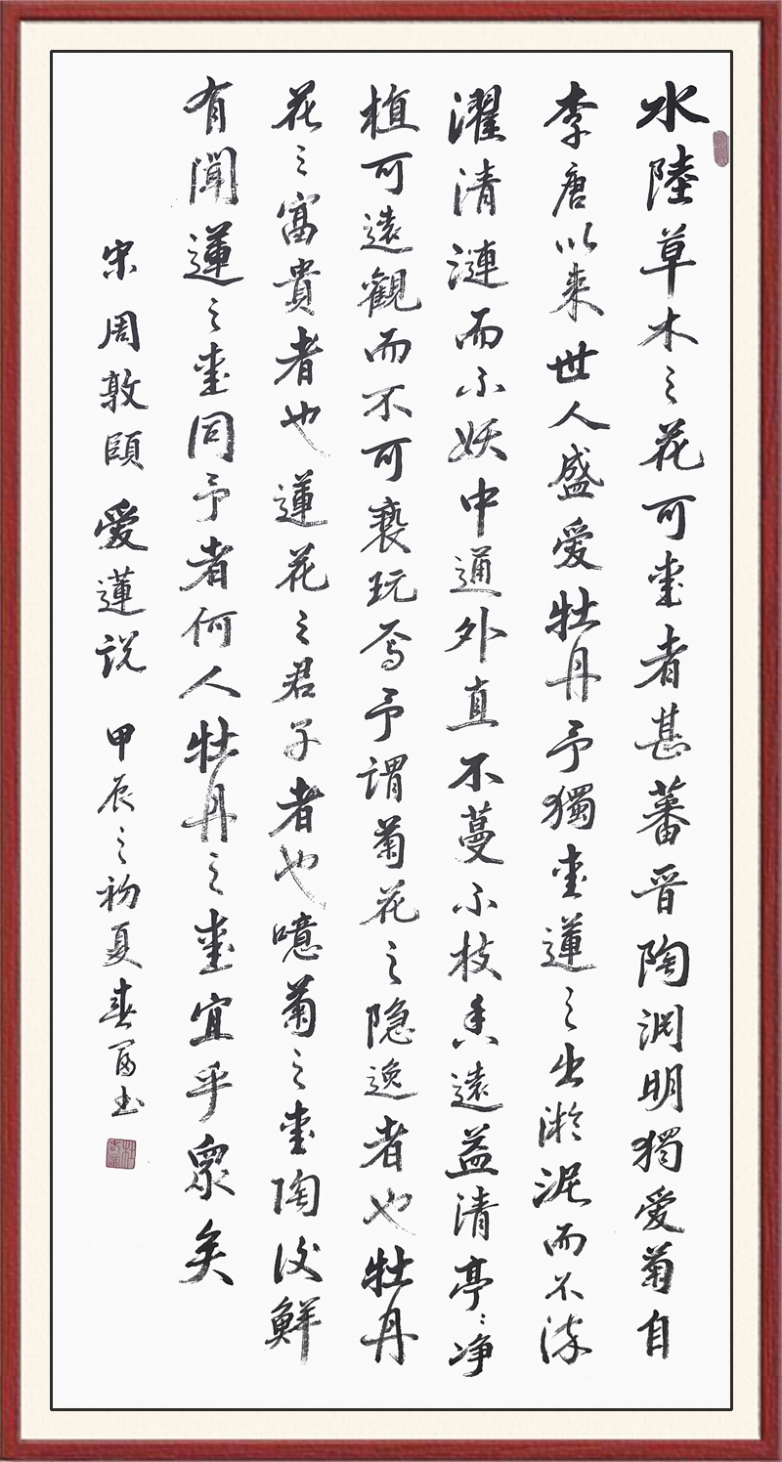 水陸草木之花可愛者甚蕃晋陶淵明獨愛菊自
李唐以来世人盛愛牡丹予獨愛蓮之出淤泥而不染
濯清漣而不妖中通外直不蔓不枝香遠益清亭亭净
植可遠觀而不可褻玩焉予謂菊花之隐逸者也牡丹
花之富貴者也蓮花之君子者也噫菊之愛陶後鮮
有聞蓮之愛同予者何人牡丹之愛宜乎眾矣
宋周敦頤愛蓮説甲辰之初夏春富书